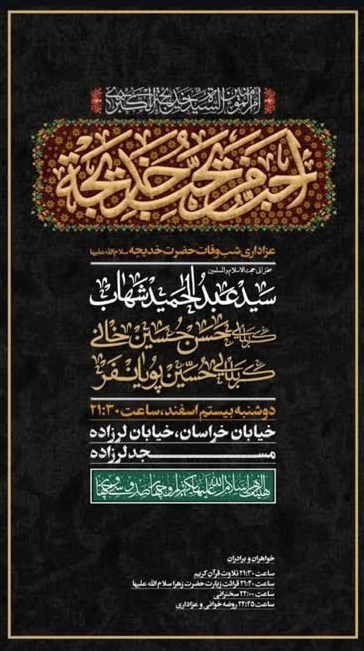 ام المؤمنین السیدة خدیجة الکبری
احب من یحب خدیجة
عزاداری شب وفات حضرت خدیجه سلام‌الله‌علیها
سخرانی حجت‌الاسلام والمسلمین
سید عبدالحمید شهاب
کربلایی حسن حسین خانی
کربلایی حسین پویانفر
دوشنبه بیستم اسفند، ساعت ۲۱:۳۰
خیابان خراسان، خیابان لرزاده
مسجد لرزاده
خواهران و برادران
ساعت ۲۱:۳۰ تلاوت قرآن کریم
ساعت ۲۱:۴۰ قرائت زیارت حضرت زهرا سلام الله علیها
ساعت ۲۲:۰۰ سخنرانی
ساعت ۲۲:۴۵ روضه خوانی و عزاداری